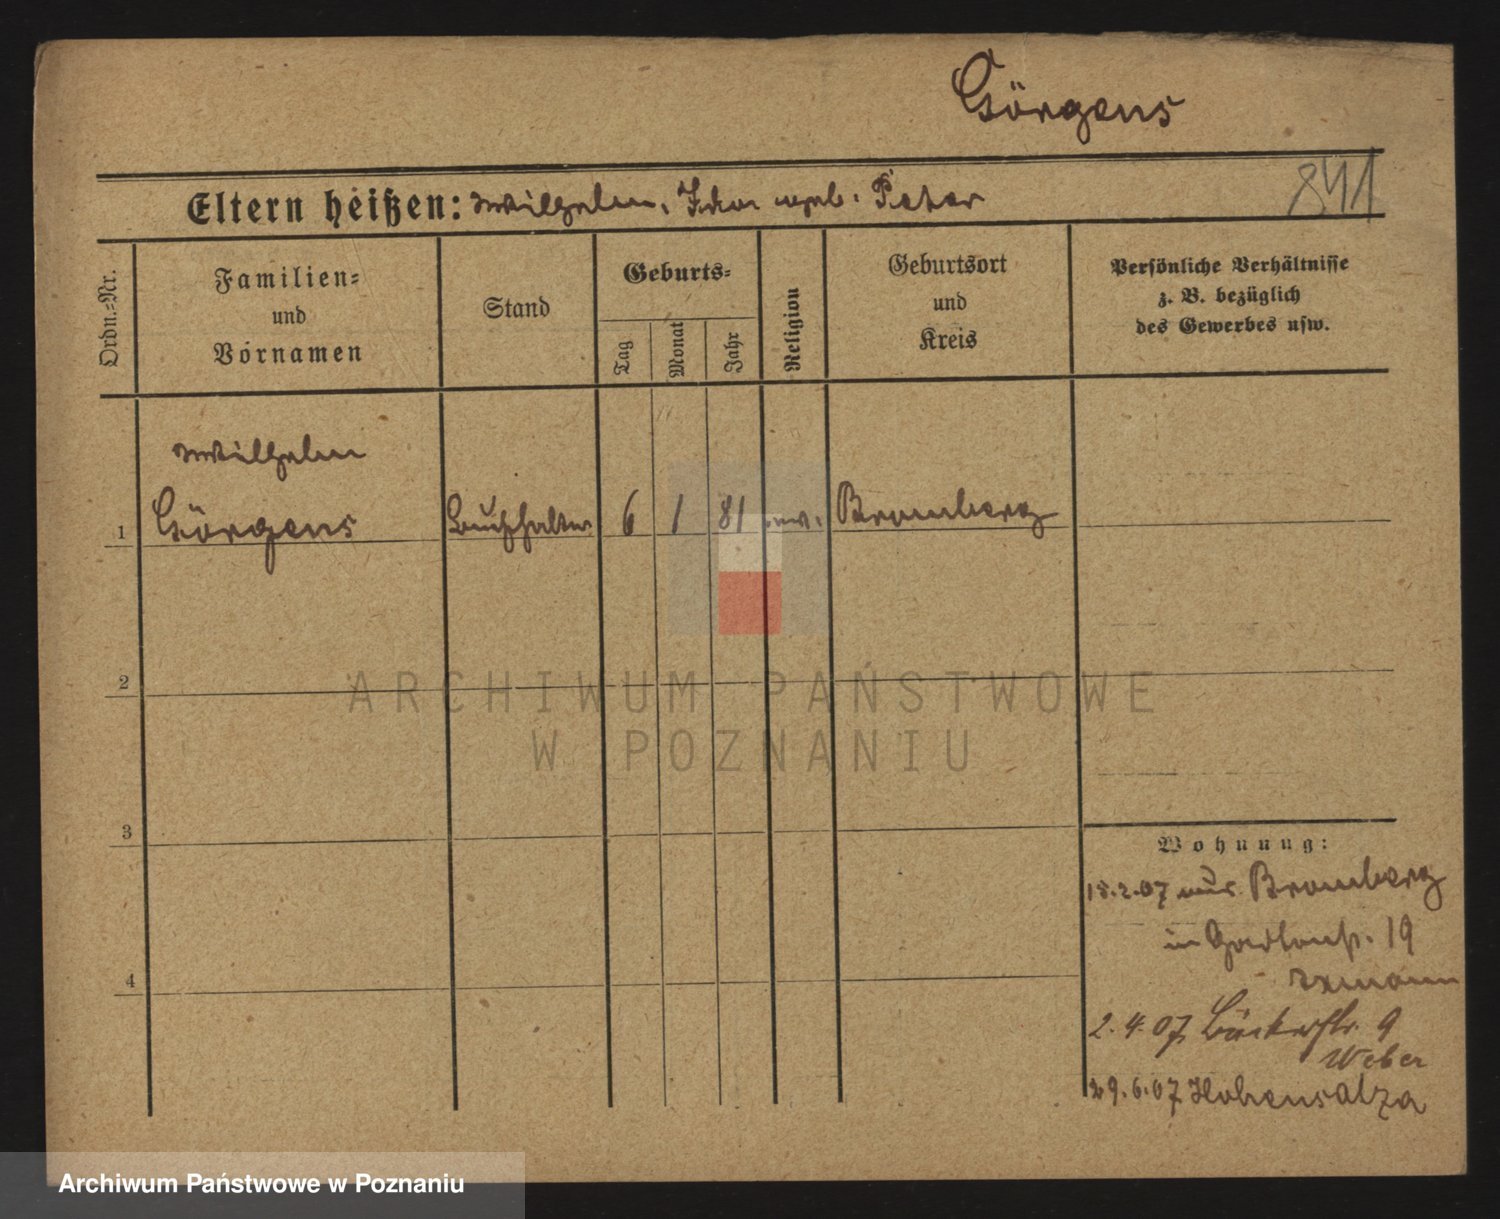 Görgens
841
Eltern heißen: Wilhelm, Ida geb. Peter
Ordn.=Nr.
Familien=
und
Vornamen
Stand
Geburts=
Tag
Monat
Jahr
Religion
Geburtsort
und
Kreis
Persönliche Verhältnisse
z. B. bezüglich
des Gewerbes usw.
Wilhelm
1 Görgens Buchhalter 6 1 81 ev. Bromberg
2
ARCHIWUM PAŃSTWOWE
W POZNANIU
3
Wohnung:
18.2.07 aus Bromberg
in 19
4
2.4.07 Bäckerstr. 9
Weber
29.6.07 Hohensalza
Archiwum Państwowe w Poznaniu